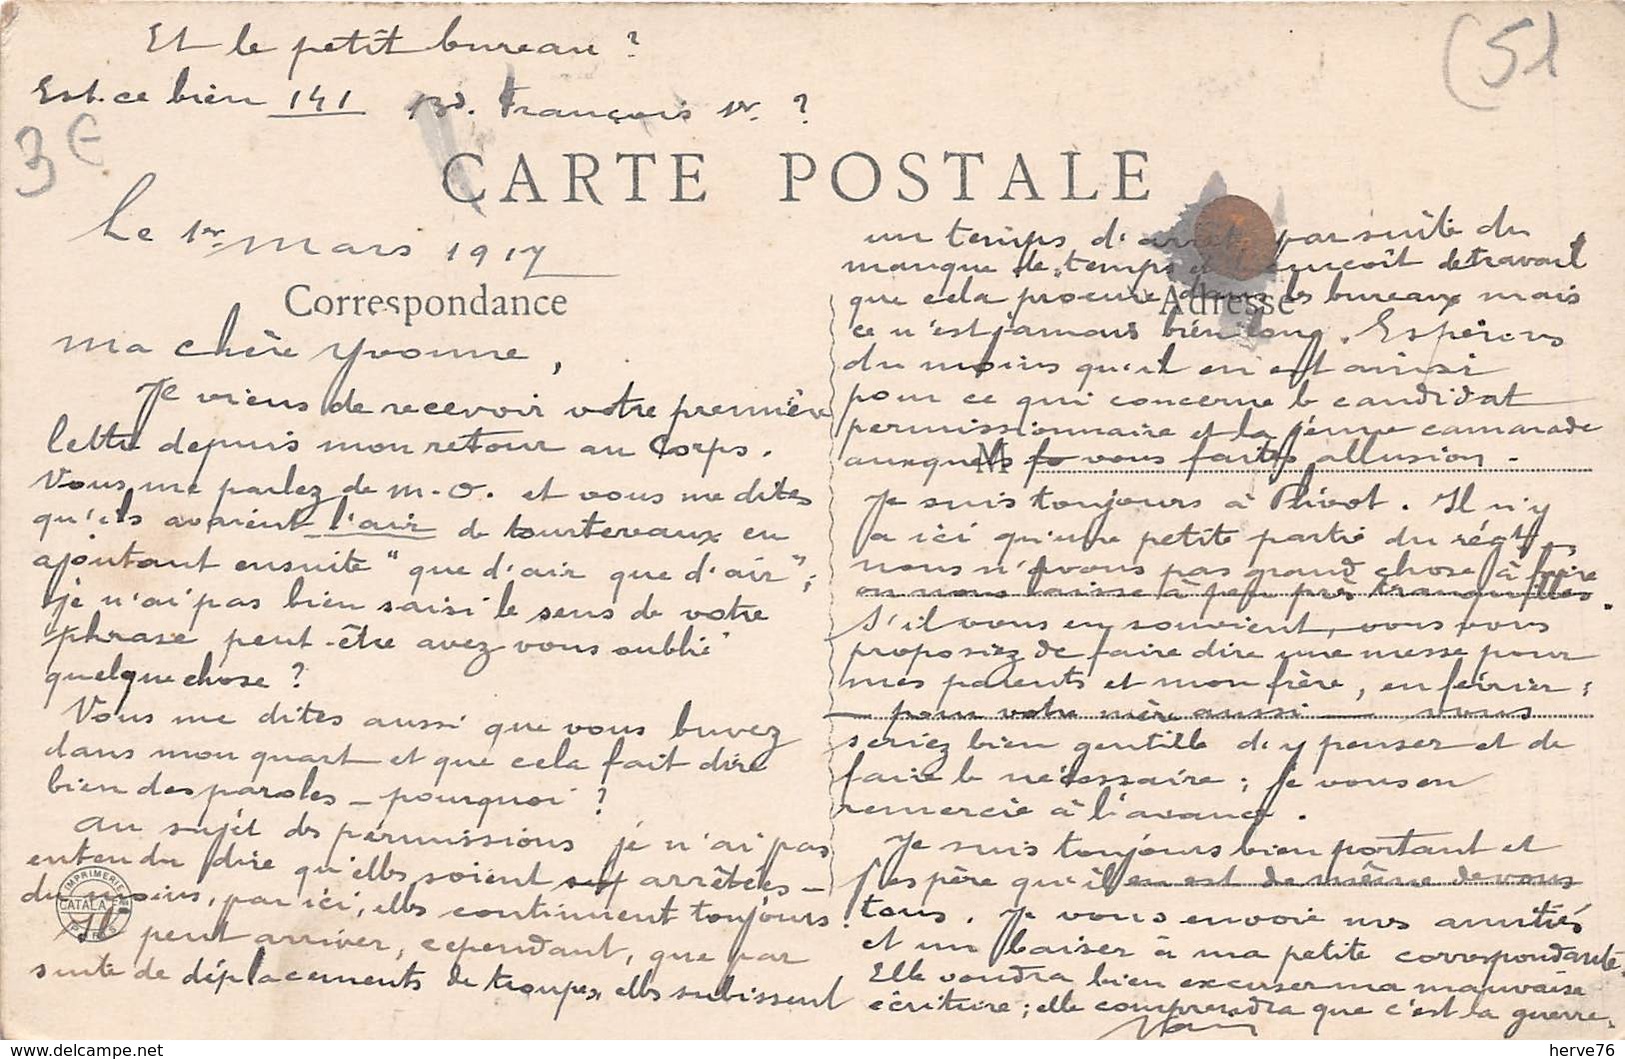 Et le petit bureau ?
Est-ce bien 141 Bd. François 1er. ?
(51
3€
CARTE POSTALE
Le 1er Mars 1917
Correspondance
Adresse
Ma chère Yvonne,
Je viens de recevoir votre première
lettre depuis mon retour au Corps.
Vous me parlez de M-O. et vous me dites
qu'ils avaient l'air de tourtereaux en
ajoutant ensuite "que d'air que d'air";
je n'ai pas bien saisi le sens de votre
phrase peut-être avez vous oublié
quelque chose ?
Vous me dites aussi que vous buvez
dans mon quart et que cela fait dire
bien des paroles - pourquoi ?
Au sujet des permissions je n'ai pas
entendu dire qu'elles soient arrêtées -
du moins, par ici, elles continuent toujours.
Il peut arriver, cependant, que par
suite de déplacements de troupes, elles subissent
IMPRIMERIE
CATALA
PARIS
un temps d'arrêt par suite du
manque de temps et du surcroît de travail
que cela procure dans les bureaux mais
ce n'est jamais bien long. Espérons
du moins qu'il en est ainsi
pour ce qui concerne le candidat
permissionnaire et la jeune camarade
auxquels vous faites allusion.
M
Je suis toujours à Plivot. Il n'y
a ici qu'une petite partie du régt,
nous n'avons pas grand chose à faire
on nous laisse à peu près tranquilles.
S'il vous en souvient, vous vous
proposiez de faire dire une messe pour
mes parents et mon frère, en février ;
- pour votre mère aussi - vous
seriez bien gentille d'y penser et de
faire le nécessaire ; je vous en
remercie à l'avance.
Je suis toujours bien portant et
j'espère qu'il en est de même de vous
tous. Je vous envoie mes amitiés
et un baiser à ma petite correspondante.
Elle voudra bien excuser ma mauvaise
écriture ; elle comprendra que c'est la guerre.
herve76